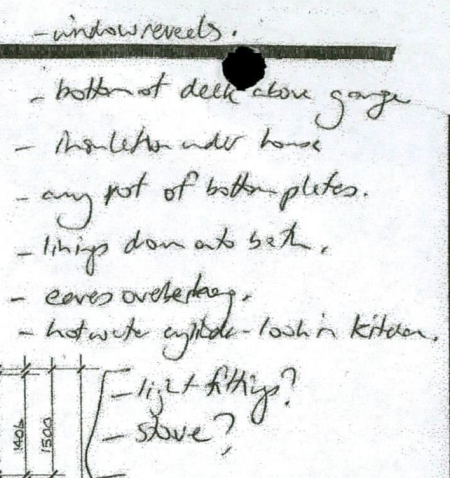 - window reveals.
- bottom of deck above garage
- insulation under house
- any rot of bottom plates.
- linings down onto bath.
- eaves overhang.
- hot water cylinder - look in kitchen.
- light fittings?
- stove?
1406
1500